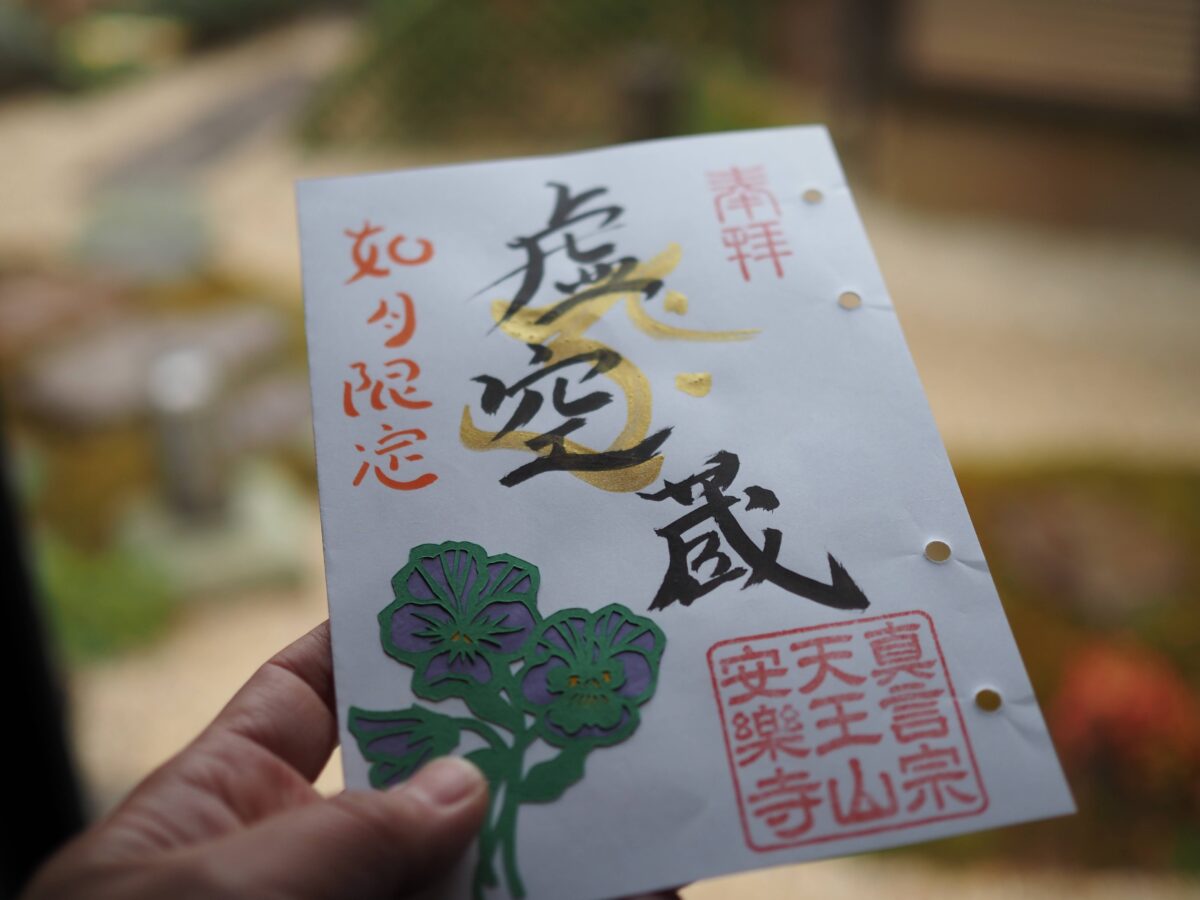 奉拝
虚空蔵
如月限定
真言宗
天王山
安樂寺